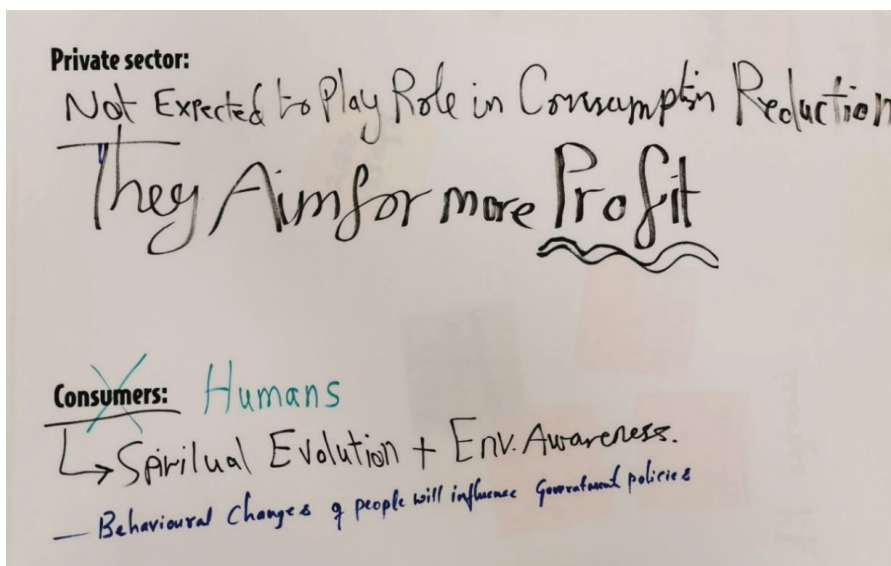 Private sector:
Not Expected to Play Role in Consumption Reduction
They Aim for more Profit
Consumers: Humans
↳ Spiritual Evolution + Env. Awareness.
— Behavioural Changes of people will influence Government policies